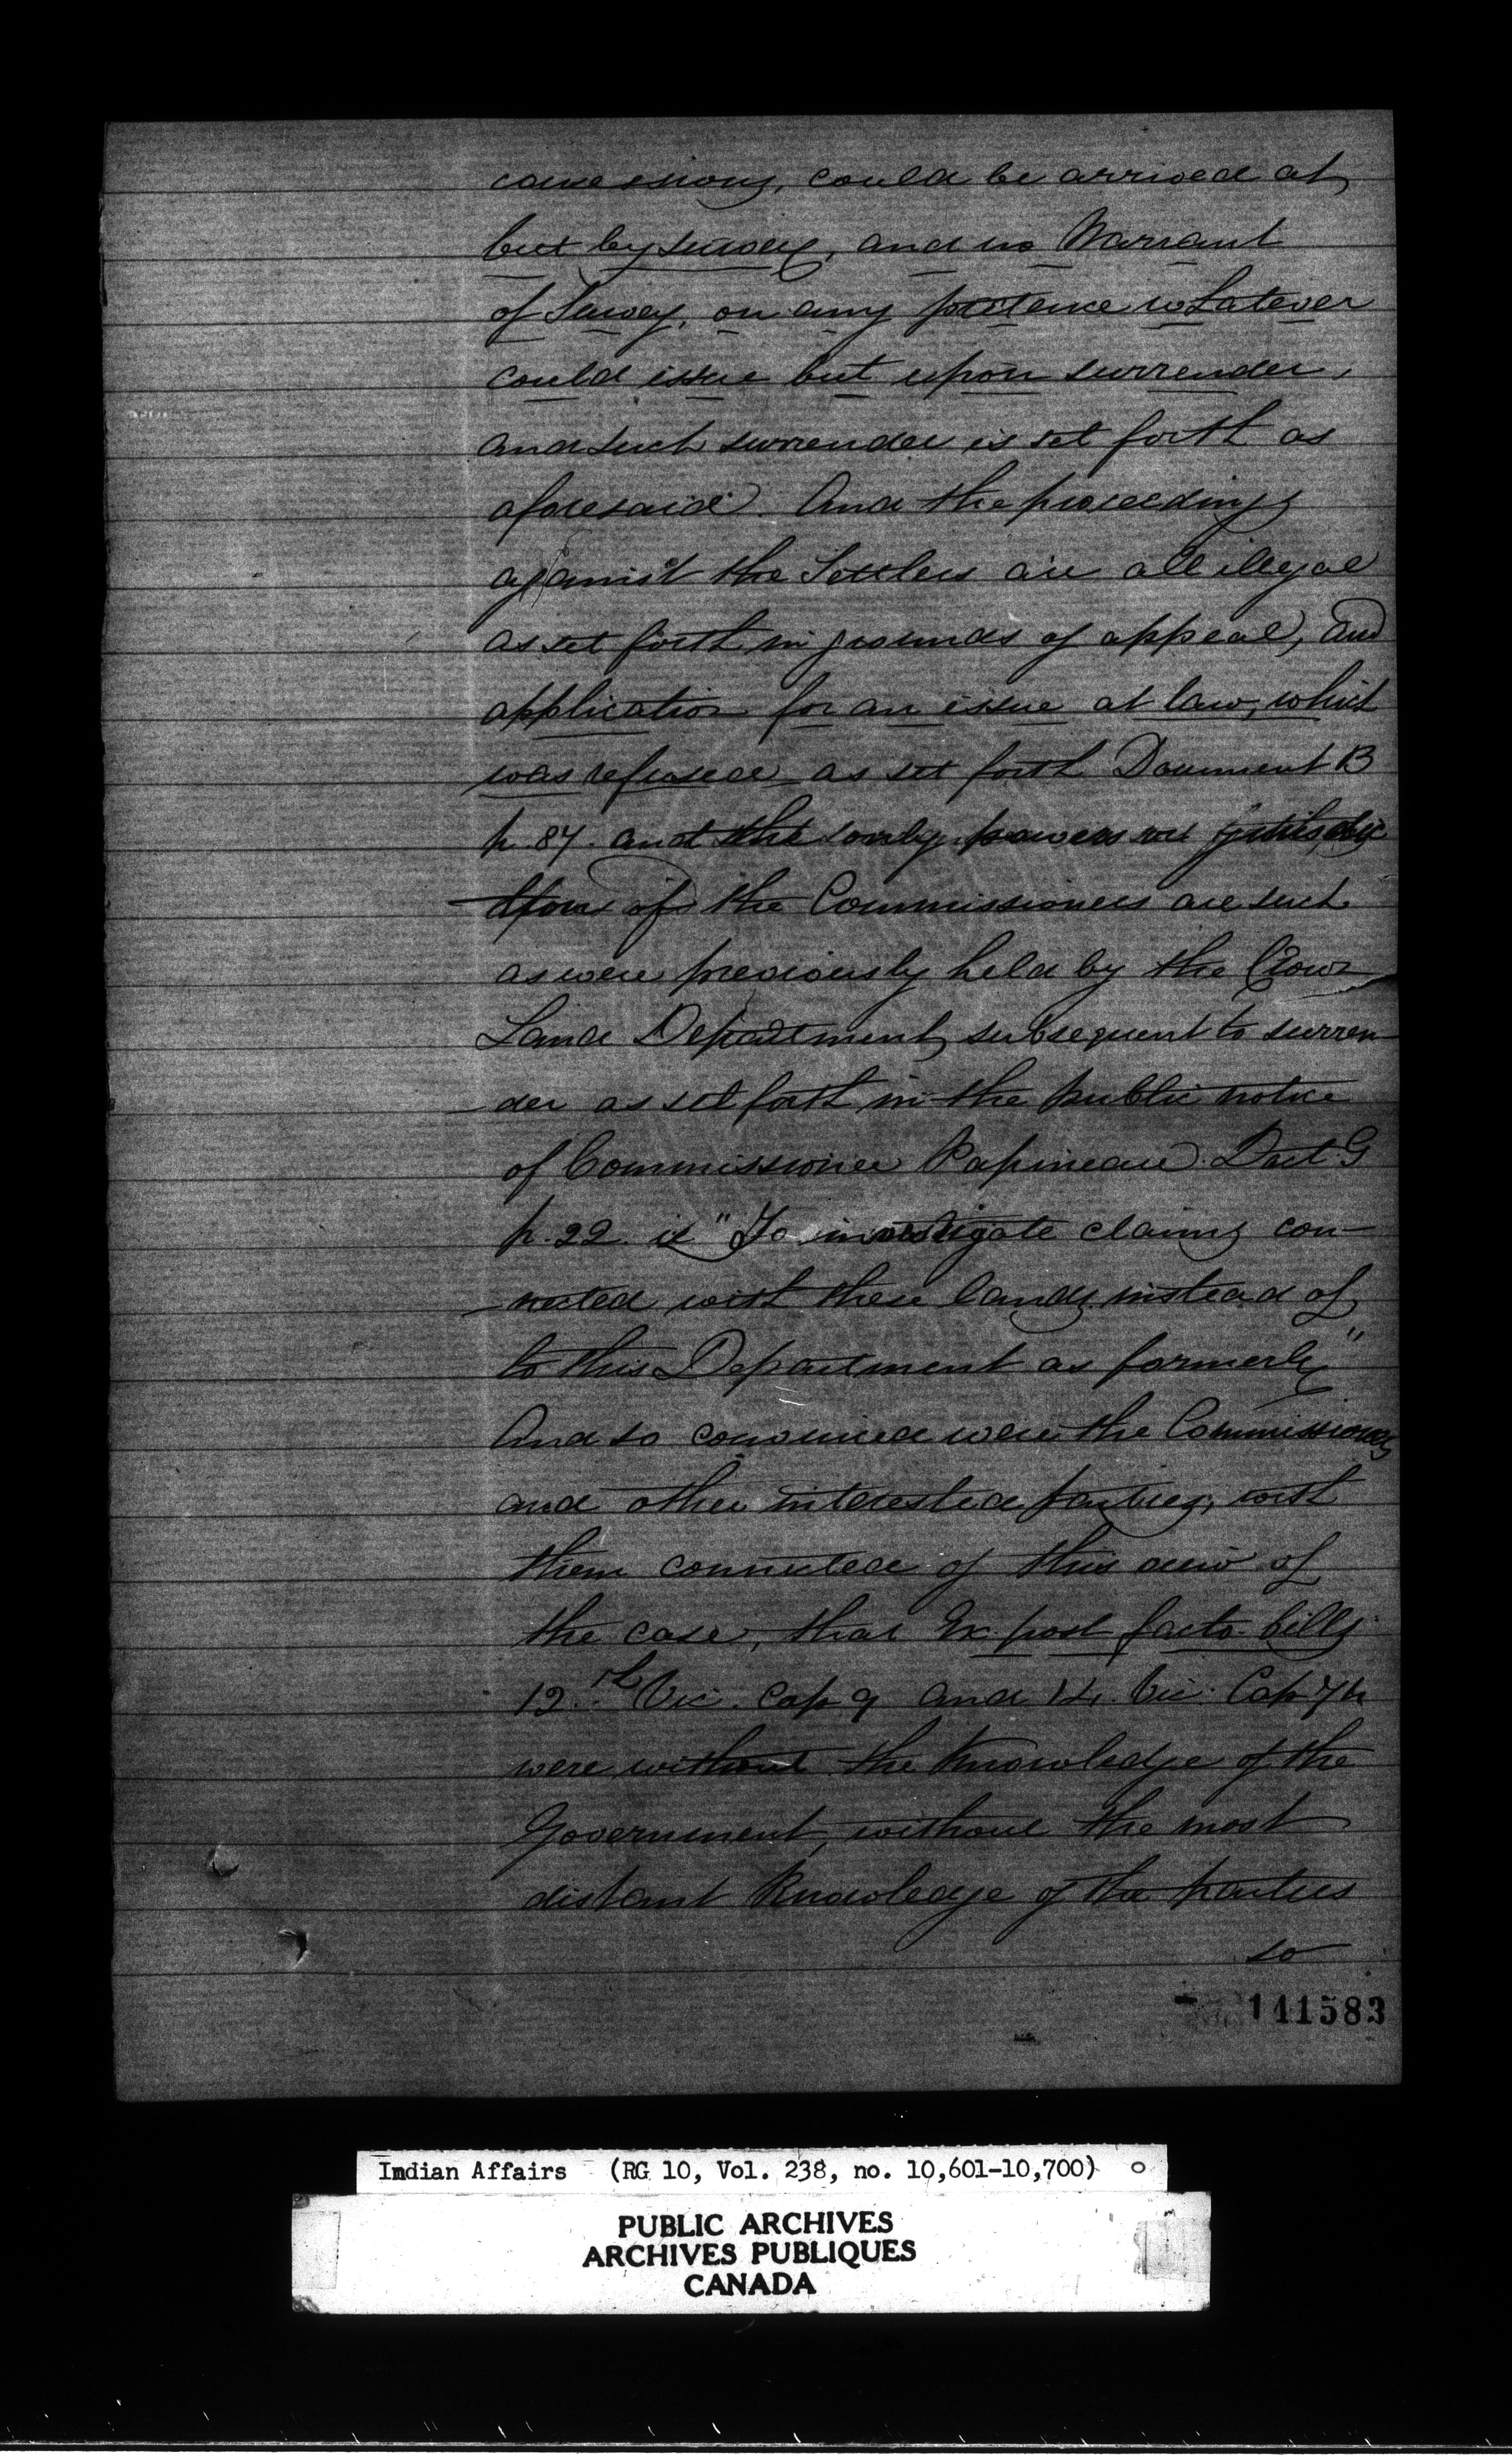 concessions, could be arrived at
but by survey, and no Warrant
of Survey, on any pretence whatever
could issue but upon surrender,
and such surrender is set forth as
aforesaid. And the proceedings
against the Settlers are all illegal
as set forth in grounds of appeal, and
application for an issue at law, which
was refused as set forth Document B
p. 87. and the only powers or jurisdic
-tion of the Commissioners are such
as were previously held by the Crown
Land Department subsequent to surren
-der as set forth in the public notice
of Commissioner Papineau. Doct. G
p. 22. is "To investigate claims con-
-nected with these lands instead of
to this Department as formerly"
And so convinced were the Commissioners
and other interested parties, with
them connected of this view of
the case, that Ex post facto bills
12th Vic. Cap 9 and 14. Vic. Cap 74
were without the knowledge of the
Government, without the most
distant knowledge of the parties
so
141583
Indian Affairs (RG 10, Vol. 238, no. 10,601-10,700)
PUBLIC ARCHIVES
ARCHIVES PUBLIQUES
CANADA